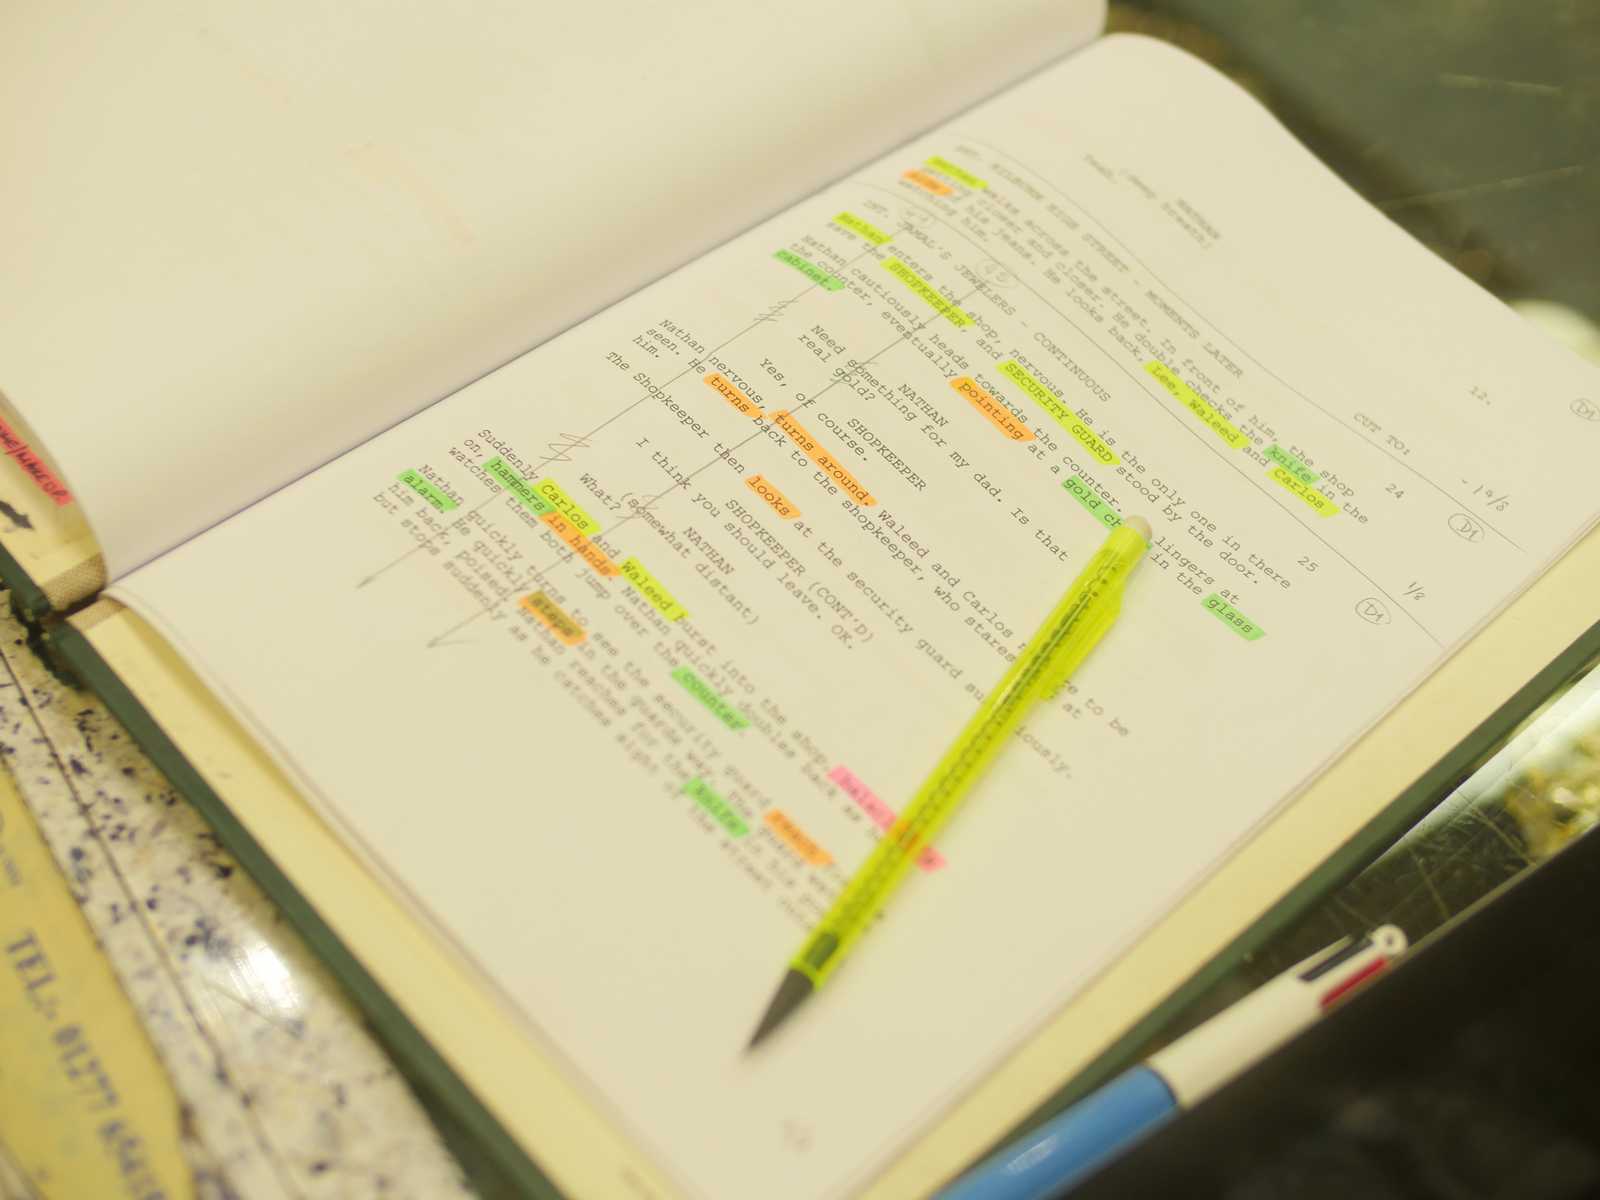 12.
NATHAN
(deep breath)
Yeah.
CUT TO:
24
EXT. KILBURN HIGH STREET - MOMENTS LATER
- 1 4/8
D1
Nathan walks across the street. In front of him, the shop
getting closer and closer. He double checks the knife in
his jeans. He looks back, Lee, Waleed and Carlos
watching him.
25
INT. JAMAL'S JEWELERS - CONTINUOUS
1/8
D1
Nathan enters the shop, nervous. He is the only one in there
save the SHOPKEEPER, and SECURITY GUARD stood by the door.
Nathan cautiously heads towards the counter. lingers at
the counter, eventually pointing at a gold in the glass
cabinet.
NATHAN
Need something for my dad. Is that
real gold?
SHOPKEEPER
Yes, of course.
Nathan nervous, turns around. Waleed and Carlos to be
seen. He turns back to the shopkeeper, who stares at
him.
The Shopkeeper then looks at the security guard
SHOPKEEPER (CONT'D)
I think you should leave. OK.
NATHAN
(somewhat distant)
What?
Suddenly Carlos and Waleed burst into the shop,
on, hammers in hands. Nathan quickly doubles back as
watches them both jump over the counter
Nathan quickly turns to see the security guard reach
alarm. He quickly steps in the guards way. The guard
him back, poised, Nathan reaches for the knife in his
but stops suddenly as he catches sight of the
TEL:. 01277